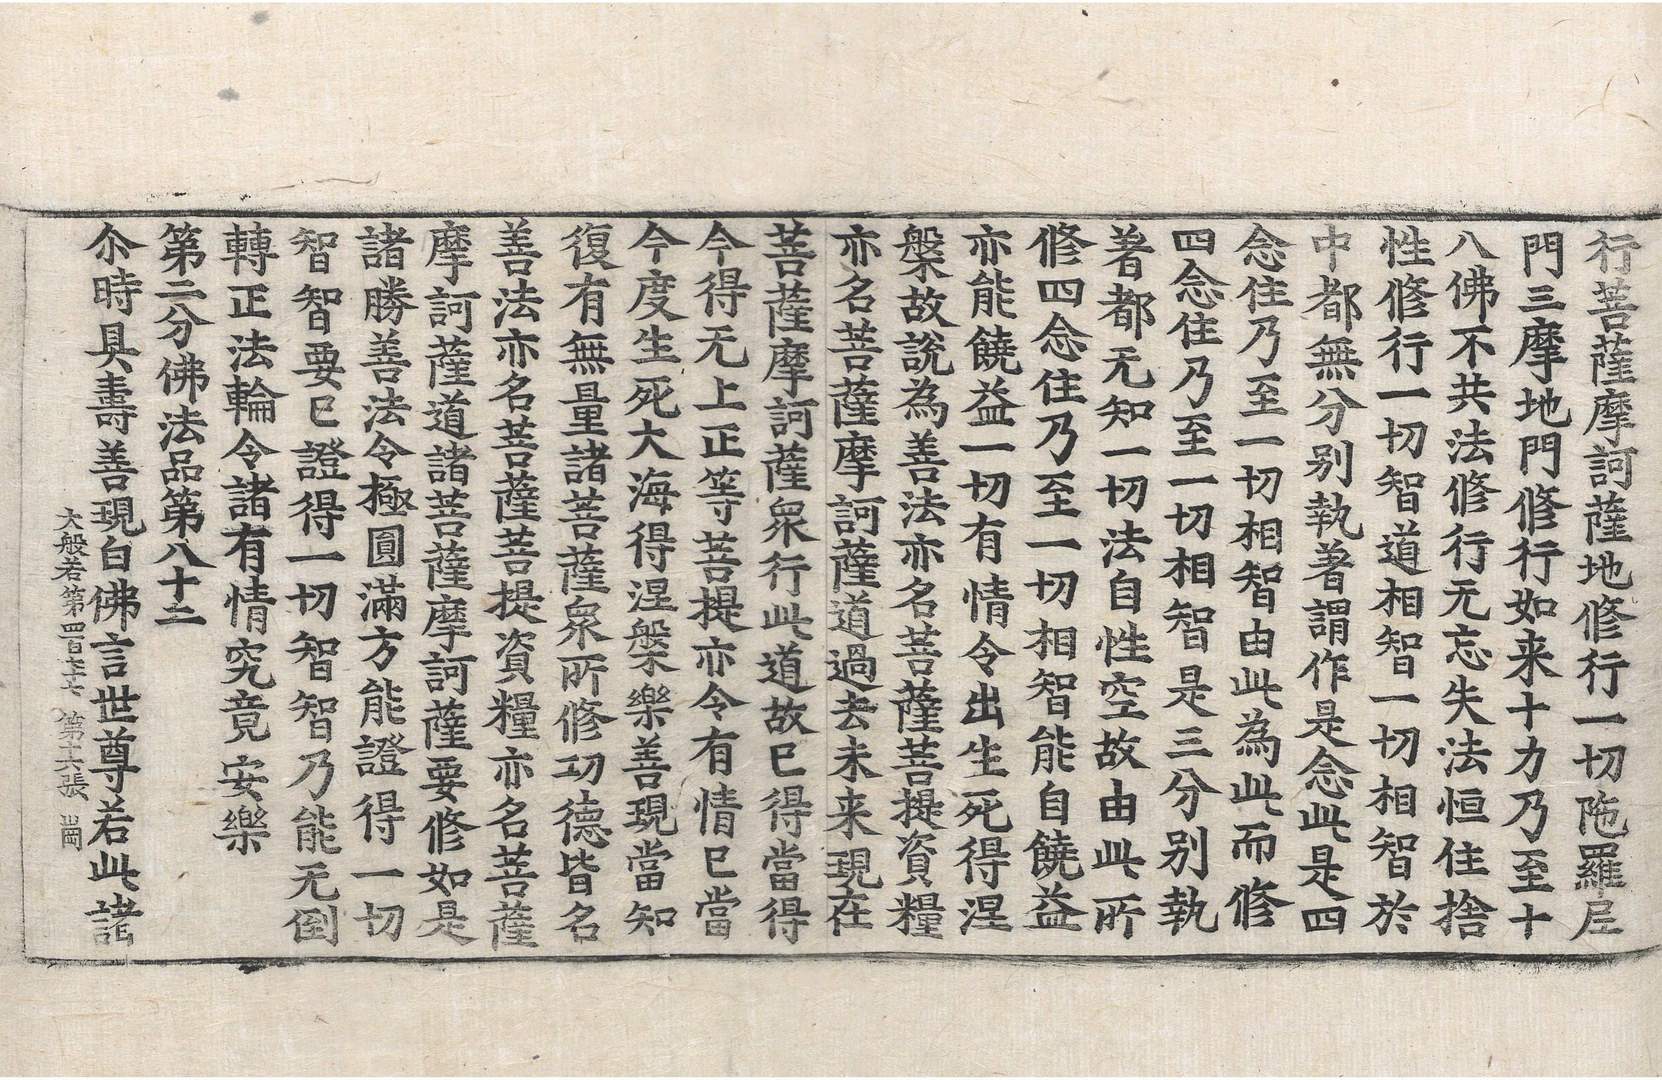 行菩薩摩訶薩地修行一切陁羅尼
門三摩地門修行如来十力乃至十
八佛不共法修行无忘失法恒住捨
性修行一切智道相智一切相智於
中都無分别執著謂作是念此是四
念住乃至一切相智由此為此而修
四念住乃至一切相智是三分别執
著都无知一切法自性空故由此所
修四念住乃至一切相智能自饒益
亦能饒益一切有情令出生死得涅
槃故說為善法亦名菩薩菩提資糧
亦名菩薩摩訶薩道過去未来現在
菩薩摩訶薩衆行此道故已得當得
今得无上正等菩提亦令有情已當
今度生死大海得涅槃樂善現當知
復有無量諸菩薩衆所修功德皆名
善法亦名菩薩菩提資糧亦名菩薩
摩訶薩道諸菩薩摩訶薩要修如是
諸勝善法令極圓滿方能證得一切
智智要已證得一切智智乃能无倒
轉正法輪令諸有情究竟安樂
第二分佛法品第八十二
尒時具壽善現白佛言世尊若此諸
大般若第四百七十七 第十六張 崗